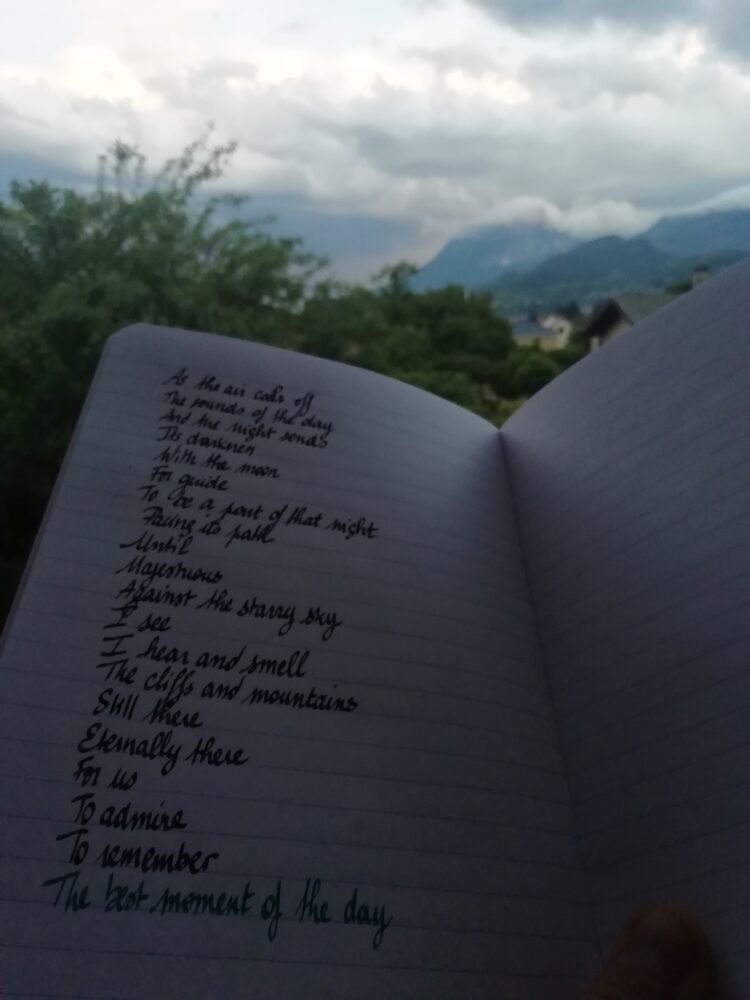 As the air cools off
The sounds of the day
And the night sends
Its darkness
With the moon
For guide
To be a part of that night
Facing its path
Until
Majestuous
Against the starry sky
I see
I hear and smell
The cliffs and mountains
Still there
Eternally there
For us
To admire
To remember
The best moment of the day